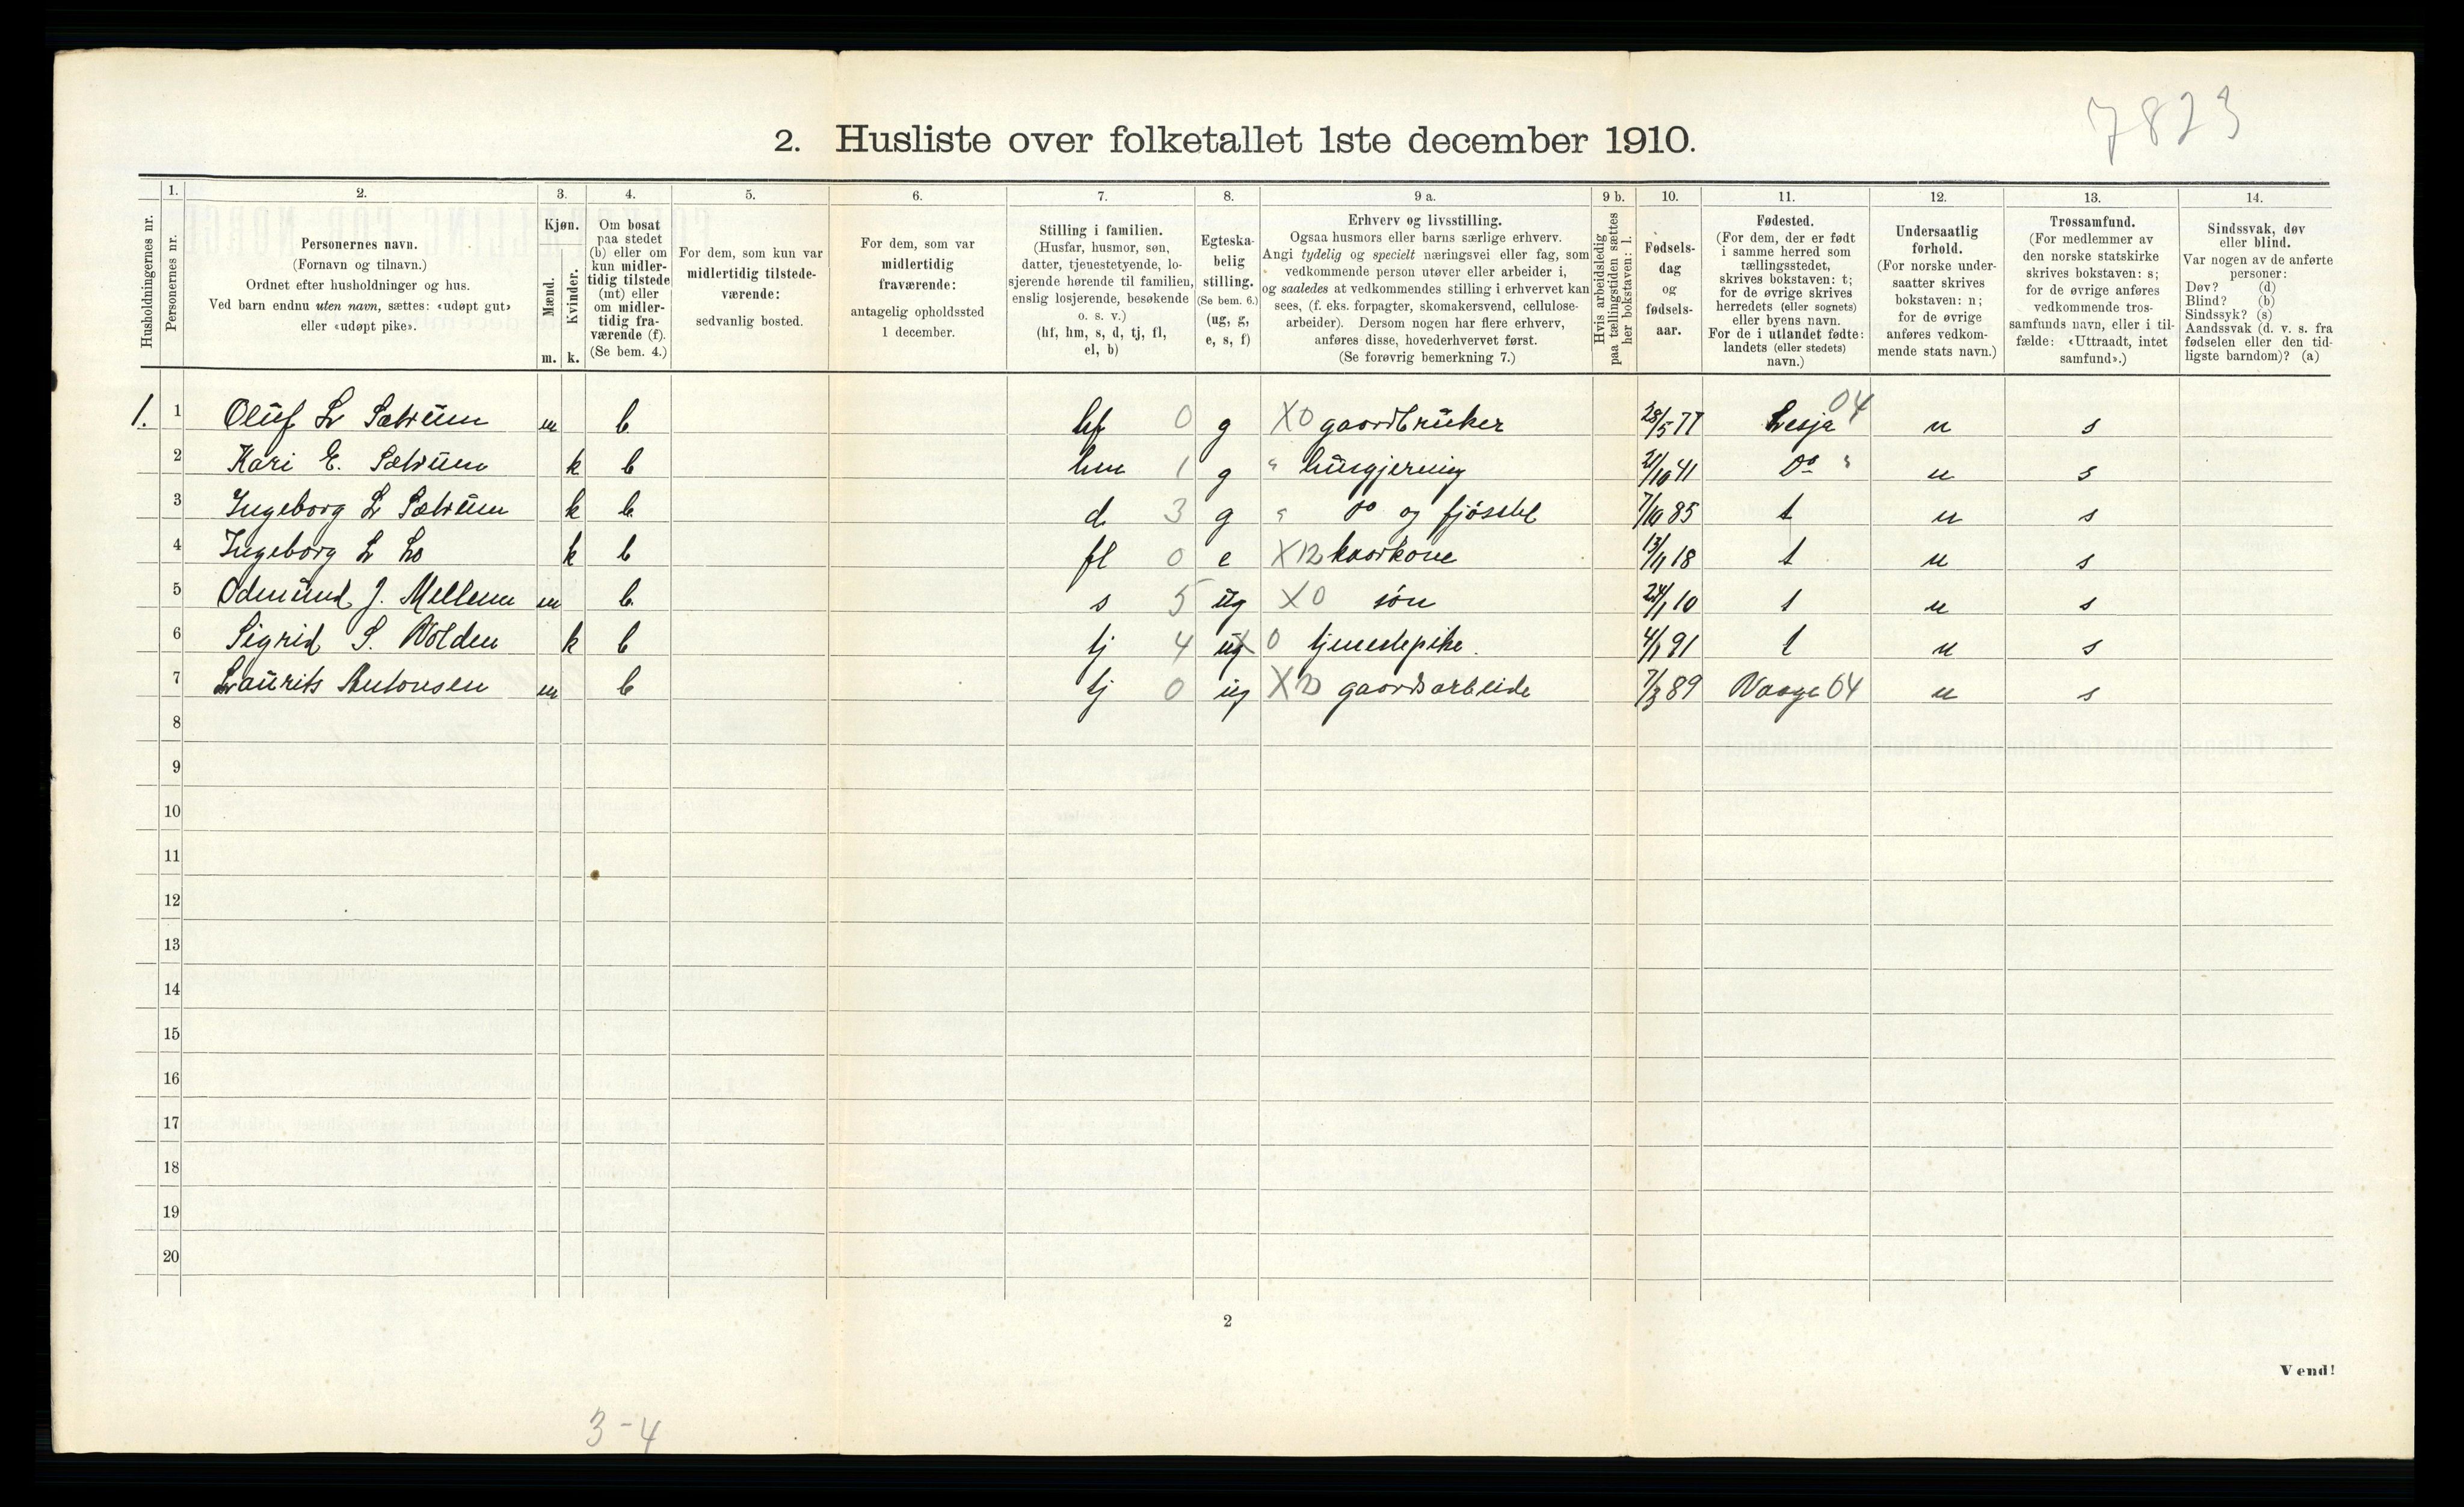 7823
2. Husliste over folketallet 1ste december 1910.
Husholdningernes nr.
1.
Personernes nr.
2.
Personernes navn.
(Fornavn og tilnavn.)
Ordnet efter husholdninger og hus.
Ved barn endnu uten navn, sættes: «udøpt gut»
eller «udøpt pike».
3.
Kjøn.
Mænd.
Kvinder.
m. k.
4.
Om bosat
paa stedet
(b) eller om
kun midler-
tidig tilstede
(mt) eller
om midler-
tidig fra-
værende (f).
(Se bem. 4.)
5.
For dem, som kun var
midlertidig tilstede-
værende:
sedvanlig bosted.
6.
For dem, som var
midlertidig
fraværende:
antagelig opholdssted
1 december.
7.
Stilling i familien.
(Husfar, husmor, søn,
datter, tjenestetyende, lo-
sjerende hørende til familien,
enslig losjerende, besøkende
o. s. v.)
(hf, hm, s, d, tj, fl,
el, b)
8.
Egteska-
belig
stilling.
(Se bem. 6.)
(ug, g,
e, s, f)
9 a.
Erhverv og livsstilling.
Ogsaa husmors eller barns særlige erhverv.
Angi tydelig og specielt næringsvei eller fag, som
vedkommende person utøver eller arbeider i,
og saaledes at vedkommendes stilling i erhvervet kan
sees, (f. eks. forpagter, skomakersvend, cellulose-
arbeider). Dersom nogen har flere erhverv,
anføres disse, hovederhvervet først.
(Se forøvrig bemerkning 7.)
9 b.
Hvis arbeidsledig
paa tællingstiden sættes
her bokstaven: l.
10.
Fødsels-
dag
og
fødsels-
aar.
11.
Fødested.
(For dem, der er født
i samme herred som
tællingsstedet,
skrives bokstaven: t;
for de øvrige skrives
herredets (eller sognets)
eller byens navn.
For de i utlandet fødte:
landets (eller stedets)
navn.)
12.
Undersaatlig
forhold.
(For norske under-
saatter skrives
bokstaven: n;
for de øvrige
anføres vedkom-
mende stats navn.)
13.
Trossamfund.
(For medlemmer av
den norske statskirke
skrives bokstaven: s;
for de øvrige anføres
vedkommende tros-
samfunds navn, eller i til-
fælde: «Uttraadt, intet
samfund».)
14.
Sindssvak, døv
eller blind.
Var nogen av de anførte
personer:
Døv? (d)
Blind? (b)
Sindssyk? (s)
Aandssvak (d. v. s. fra
fødselen eller den tid-
ligste barndom)? (a)
1. 1 Oluf L Sætrum m b hf 0 g X0 gaardbruker 28/5 77 Lesja 04 n s
2 Kari E. Sætrum k b hm 1 g " husgjerning 21/10 41 Do " n s
3 Ingeborg L Sætrum k b d 3 g " do og fjøsstel 7/10 85 t n s
4 Ingeborg L Lo k b fl 0 e X12 kaarkone 13/11 18 t n s
5 Odmund J. Mellem m b s 5 ug X0 søn 24/1 10 t n s
6 Sigrid S. Volden k b tj 4 ug 0 tjenestepike. 4/1 91 t n s
7 Laurits Antonsen m b tj 0 ug gaardsarbeide 7/3 89 Vaage 04 n s
8
9
10
11
12
13
14
15
16
17
18
19
20
2
Vend!
3-4